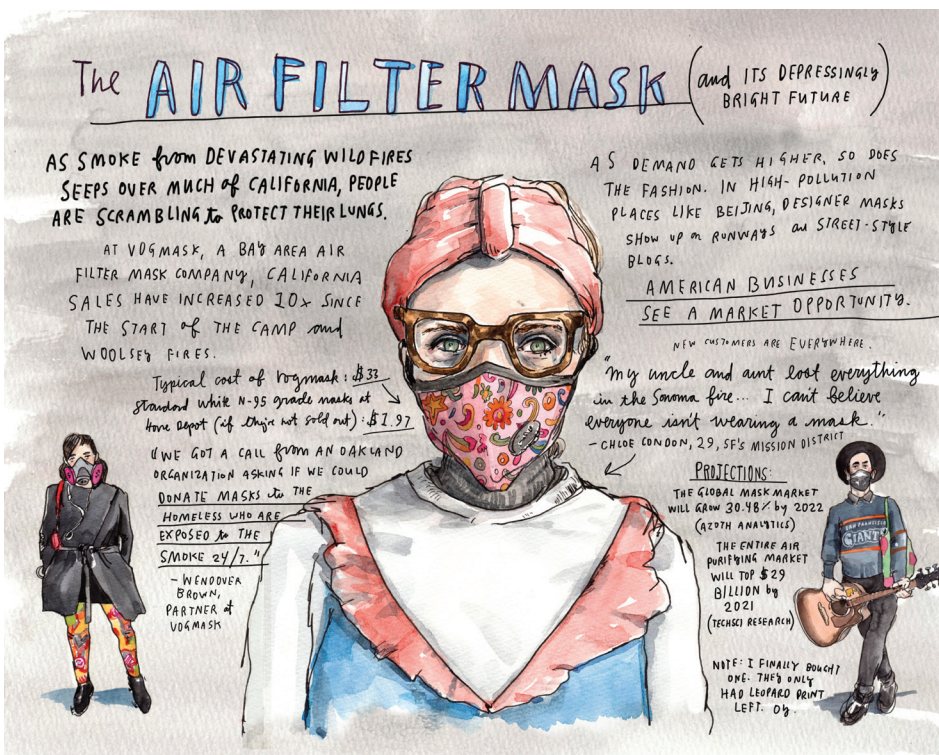 The AIR FILTER MASK
(and ITS DEPRESSINGLY
BRIGHT FUTURE)
AS SMOKE from DEVASTATING WILDFIRES
SEEPS OVER MUCH of CALIFORNIA, PEOPLE
ARE SCRAMBLING to PROTECT THEIR LUNGS.
AT VOGMASK, A BAY AREA AIR
FILTER MASK COMPANY, CALIFORNIA
SALES HAVE INCREASED 10x SINCE
THE START of THE CAMP and
WOOLSEY FIRES.
Typical cost of Vogmask: $33
Standard white N-95 grade masks at
Home Depot (if they're not sold out): $1.97
"WE GOT A CALL from AN OAKLAND
ORGANIZATION ASKING IF WE COULD
DONATE MASKS to THE
HOMELESS WHO ARE
EXPOSED to THE
SMOKE 24/7."
- WENDOVER
BROWN,
PARTNER at
VOGMASK
AS DEMAND GETS HIGHER, SO DOES
THE FASHION. IN HIGH-POLLUTION
PLACES LIKE BEIJING, DESIGNER MASKS
SHOW UP on RUNWAYS and STREET-STYLE
BLOGS.
AMERICAN BUSINESSES
SEE A MARKET OPPORTUNITY.
NEW CUSTOMERS ARE EVERYWHERE.
"My uncle and aunt lost everything
in the Sonoma fire... I can't believe
everyone isn't wearing a mask."
- CHLOE CONDON, 29, SF'S MISSION DISTRICT
PROJECTIONS:
THE GLOBAL MASK MARKET
WILL GROW 30.48% by 2022
(AZOTH ANALYTICS)
THE ENTIRE AIR
PURIFYING MARKET
WILL TOP $29
BILLION by
2021
(TECHSCI RESEARCH)
SAN FRANCISCO
GIANTS
NOTE: I FINALLY BOUGHT
ONE. THEY ONLY
HAD LEOPARD PRINT
LEFT.